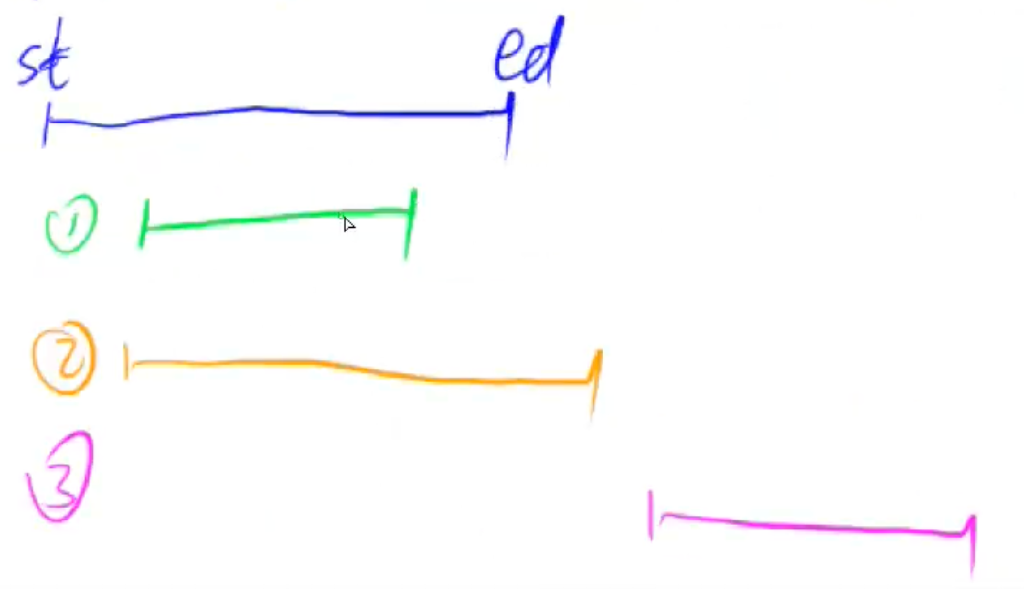 st ed
①
②
③